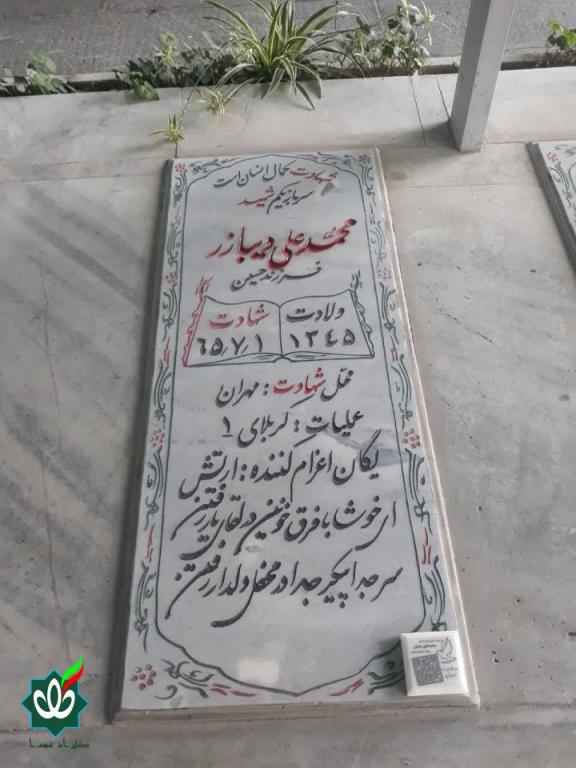 شهادت کمال انسان است
سرباز یکم شهید
محمد علی دیبازر
فرزند حسین
ولادت شهادت
۱۳۴۵ ۶۵/۷/۱
محل شهادت : مهران
عملیات : کربلای ۱
یگان اعزام کننده : ارتش
ای خوشا با فرق خونین در لقای یار رفتن
سر جدا پیکر جدا در محفل دلدار رفتن
گلزار شهدا